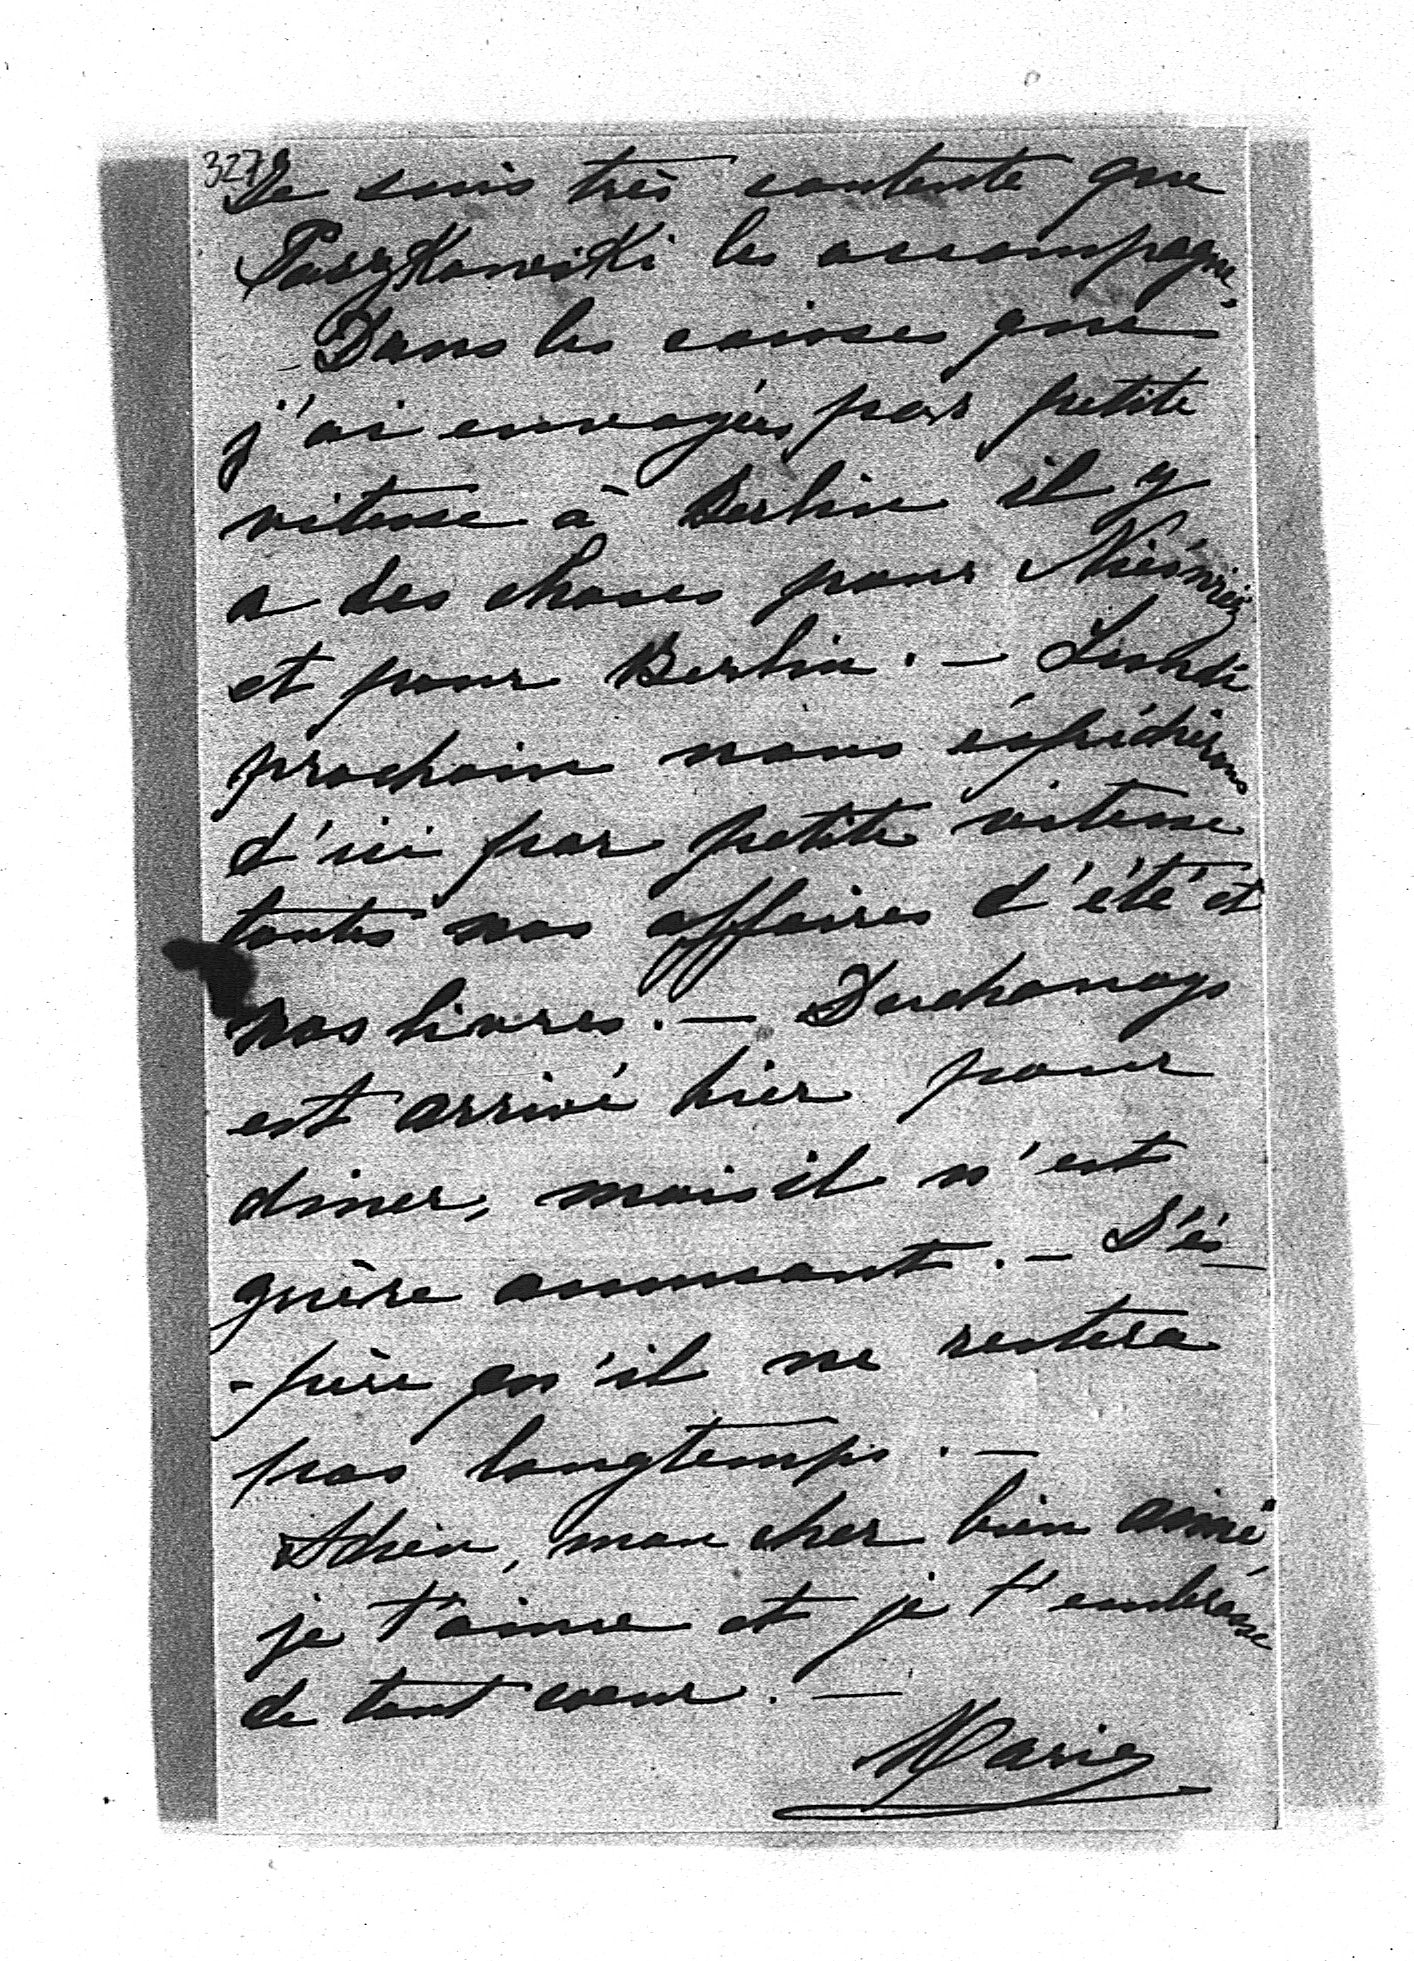 327
Je suis très contente que
Paszkowski les accompagne.
Dans les caisses que
j'ai envoyées par petite
vitesse à Berlin il y
a des choses pour Nieśwież
et pour Berlin. — Lundi
prochain nous éxpédierons
d'ici par petite vitesse
toutes nos affaires d'été et
nos livres. —
est arrivé hier pour
diner, mais il n'est
guère amusant. — J'és-
-père qu'il ne restera
pas longtemps. —
Adieu, mon cher bien aimé
je t'aime et je t'embrasse
de tout cœur. —
Marie